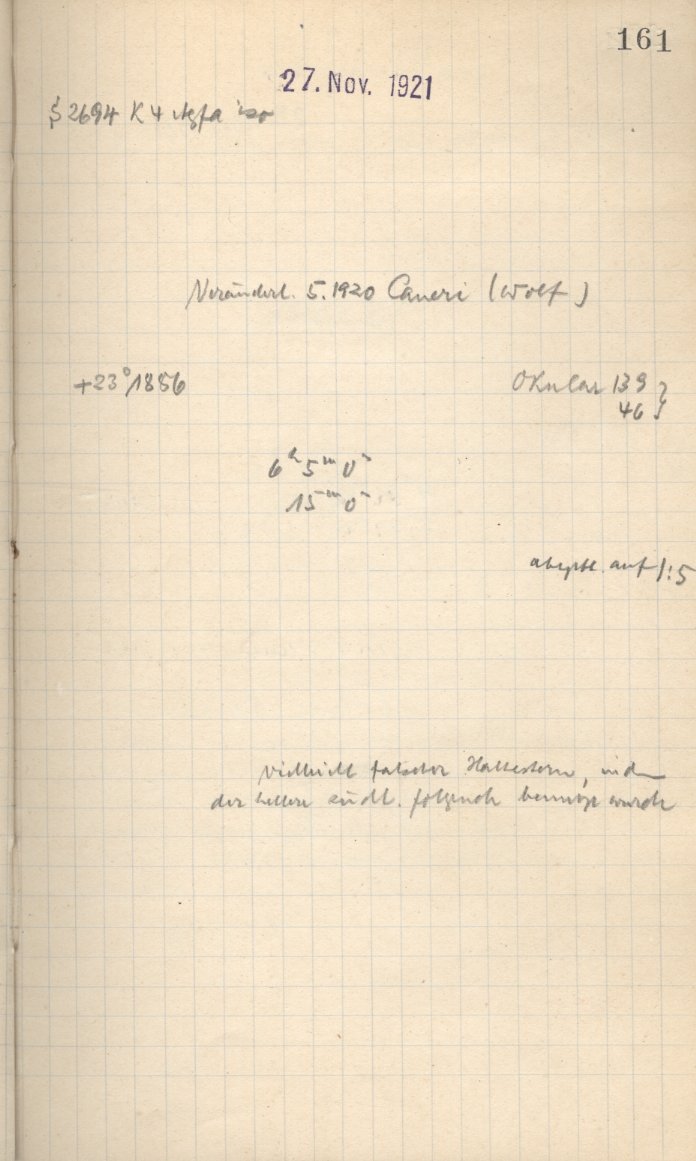 161
27. Nov. 1921
S 2694 K 4 Agfa iso
Veränderl. 5.1920 Cancri (Wolf)
+23° 1886
Okular 139 }
46
6h 5m 0s
15m 0s
abgebl. auf 1:5
vielleicht falscher Haltestern, indem
der hellere südl. folgende benützt wurde